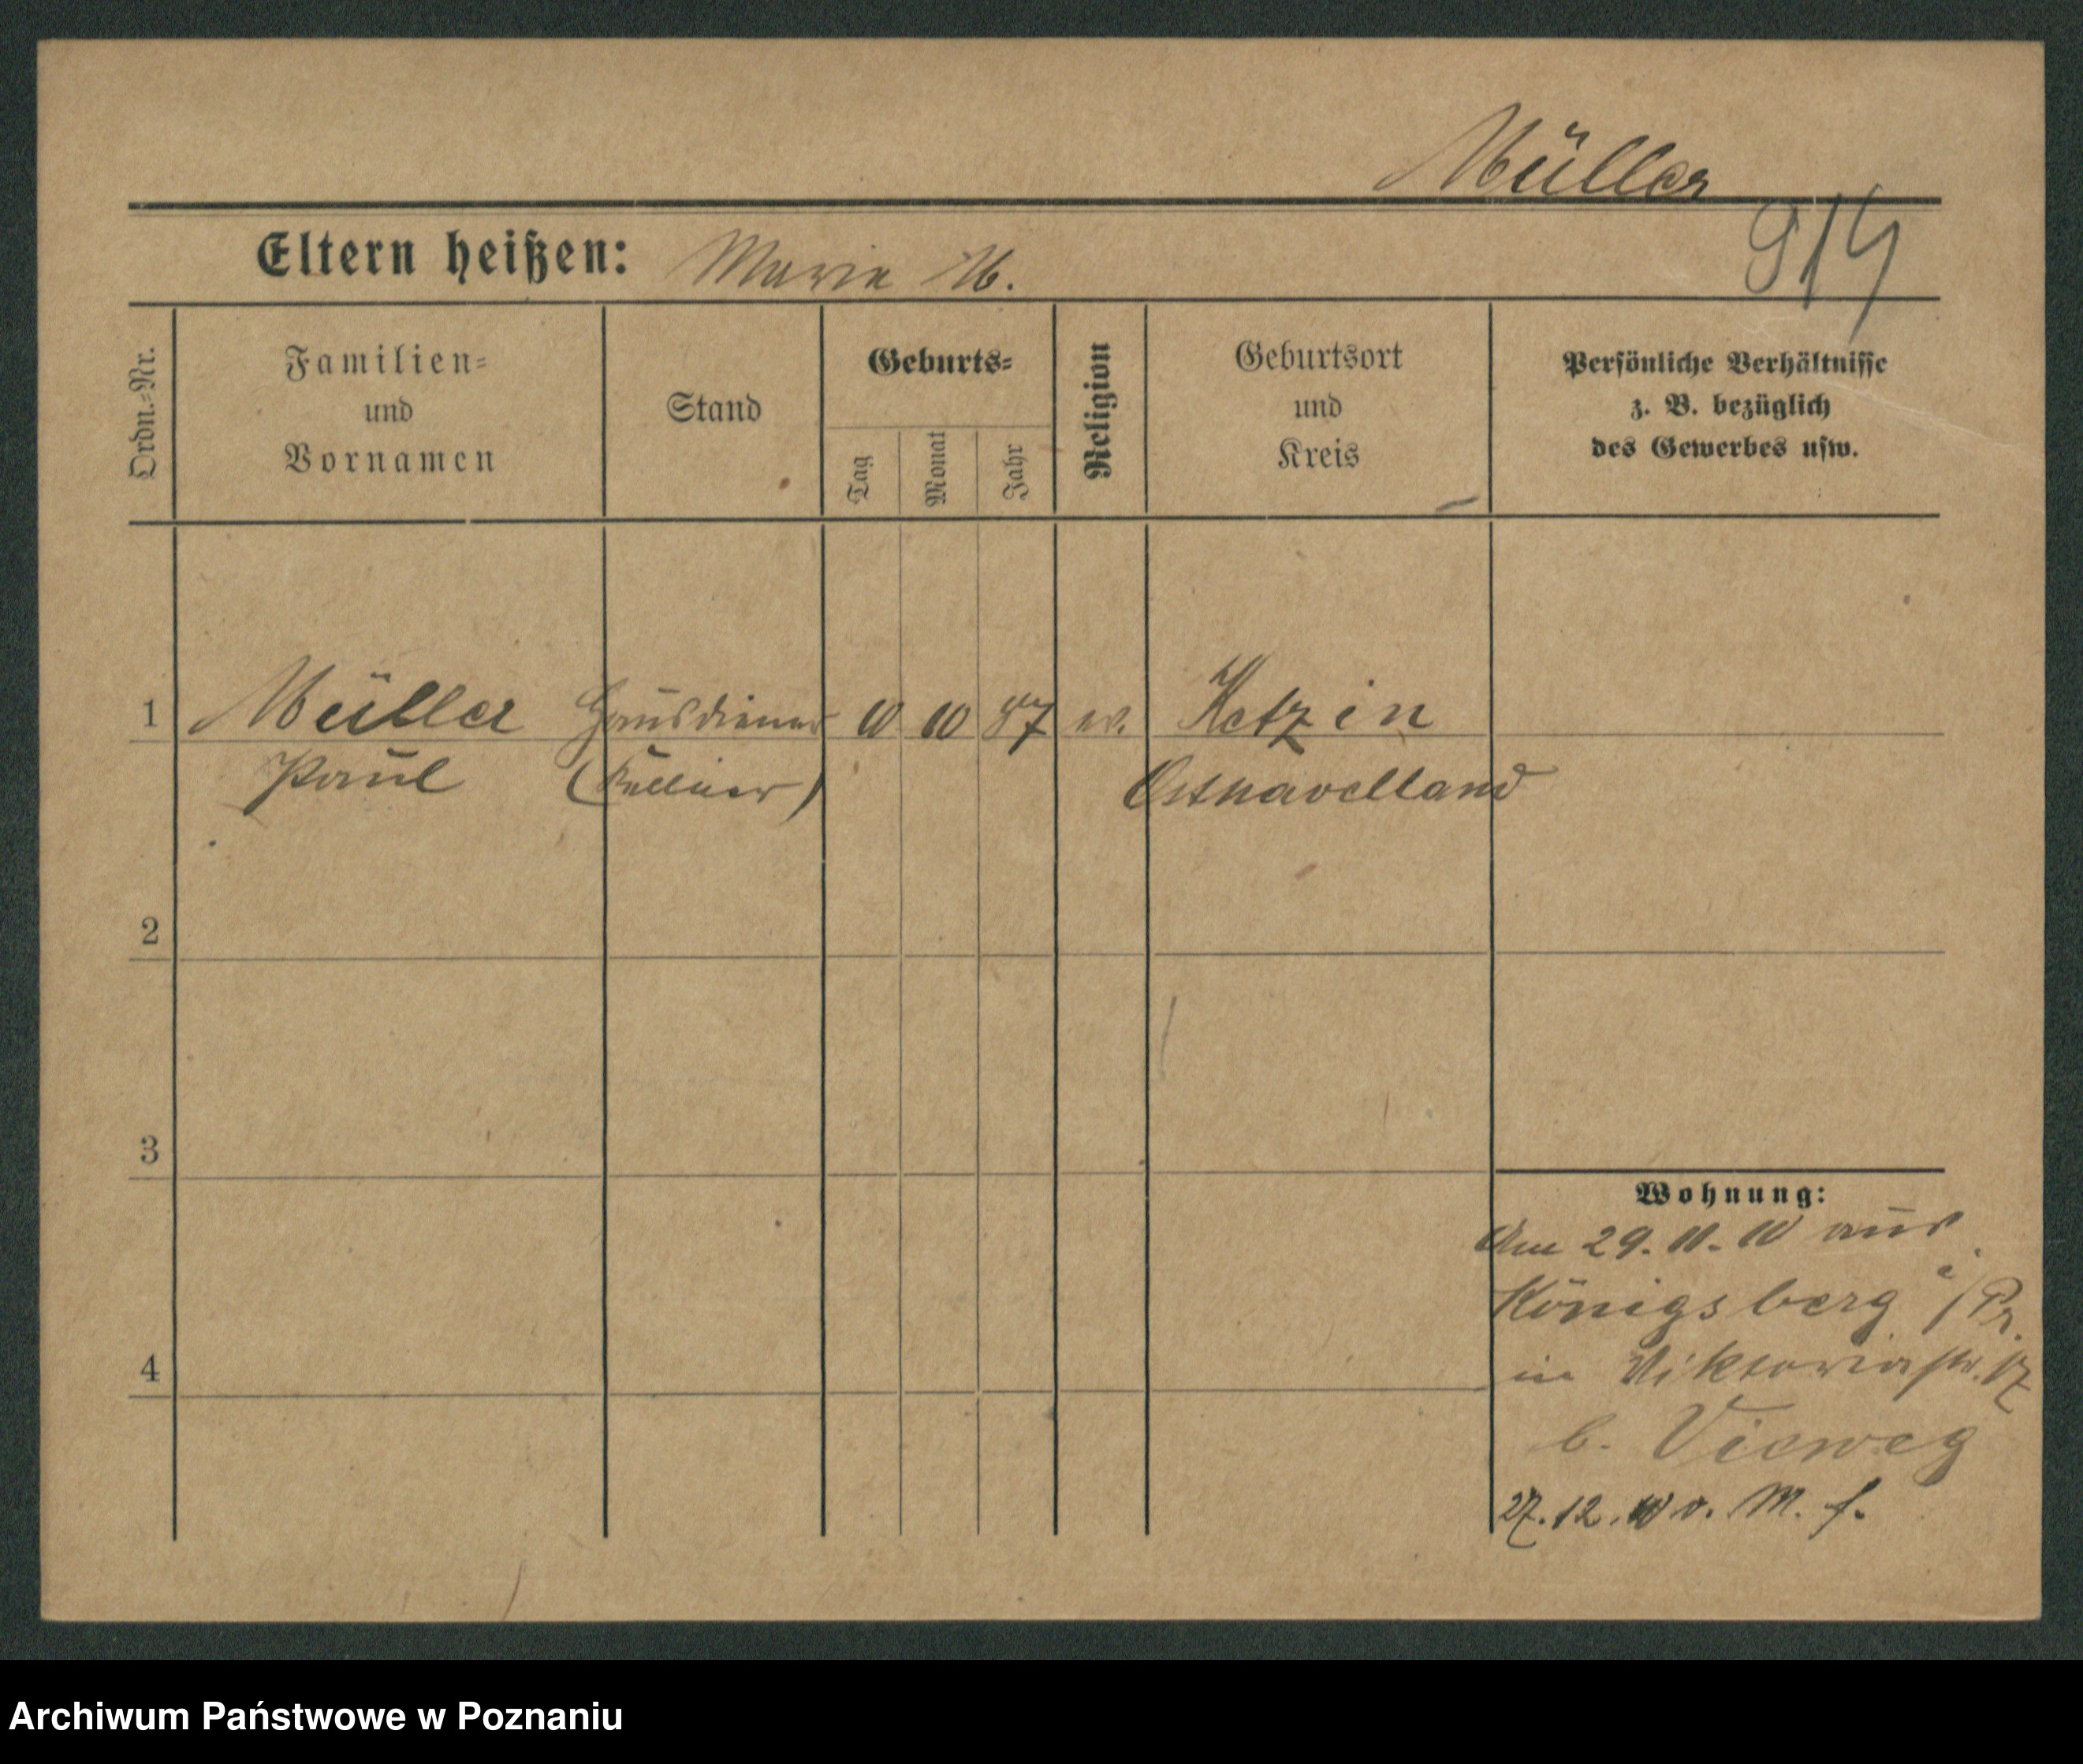 Müller
914
Eltern heißen: Marie M.
Ordn.-Nr.
Familien-
und
Vornamen
Stand
Geburts-
Tag
Monat
Jahr
Religion
Geburtsort
und
Kreis
Persönliche Verhältnisse
z. B. bezüglich
des Gewerbes usw.
1 Müller Hausdiener 10 10 87 ev. Ketzin
Paul (Kellner) Osthavelland
2
3
Wohnung:
Am 29. 11. 10 aus
Königsberg i/Pr.
4
in Viktoriastr. 17
b. Vieweg
27. 12. 10 v. M. f.
Archiwum Państwowe w Poznaniu